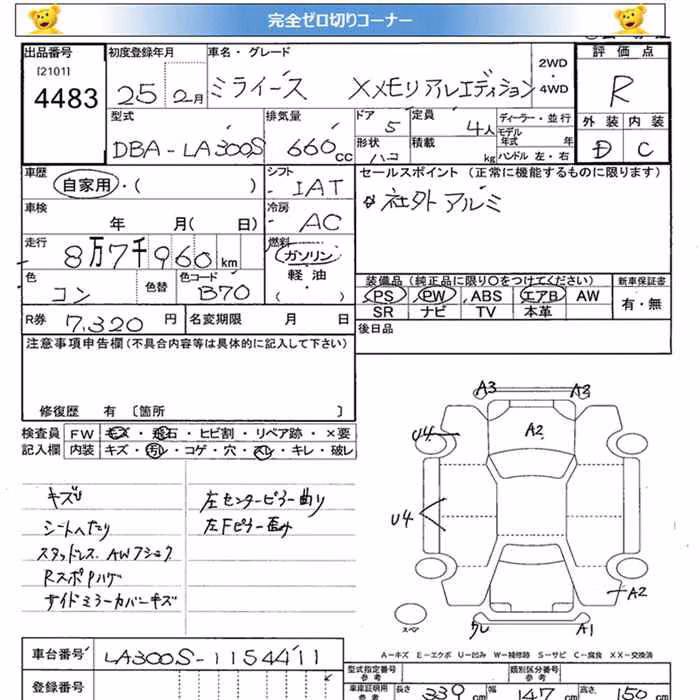 完全ゼロ切りコーナー
出品番号
[2101]
4483
初度登録年月
25 2月
車名・グレード
ミライース XXメモリアルエディション
2WD
・
4WD
評価点
R
外装 内装
D C
型式
DBA-LA300S
排気量
660cc
ドア 5
形状 ハコ
定員 4人
積載 kg
ディーラー・並行
モデル年式 年
ハンドル 左・右
車歴
自家用・( )
シフト
IAT
セールスポイント (正常に機能するものに限ります)
社外アルミ
車検
年 月( 日)
冷房
AC
走行
8万7千960km
燃料
ガソリン
軽油
( )
色
コン
色替
色コード
B70
装備品(純正品に限り〇をつけてください)
新車保証書
PS PW ABS エアB AW
SR ナビ TV 本革
有・無
R券 7,320円
名変期限 月 日
後日品
注意事項申告欄(不具合内容等は具体的に記入して下さい)
修復歴 有 〔箇所 〕
検査員 FW キズ・飛石・ヒビ割・リペア跡・×要
記入欄 内装 キズ・汚レ・コゲ・穴・スレ・キレ・破レ
キズU
シートへたり
スタッドレス AWアシヨク
RスポPハゲ
サイドミラーカバーキズ
左センターピラー曲り
左Fピラー歪み
A3 A2
A2
U4
U4
A2
クレ A1
スペア
A-キズ E-エクボ U-凹み W-補修跡 S-サビ C-腐食 XX-交換済
車台番号 LA300S-1154411
登録番号
型式指定番号
参考
類別区分番号
参考
車庫証明用
参考
長さ 339cm 幅 147cm 高さ 150cm